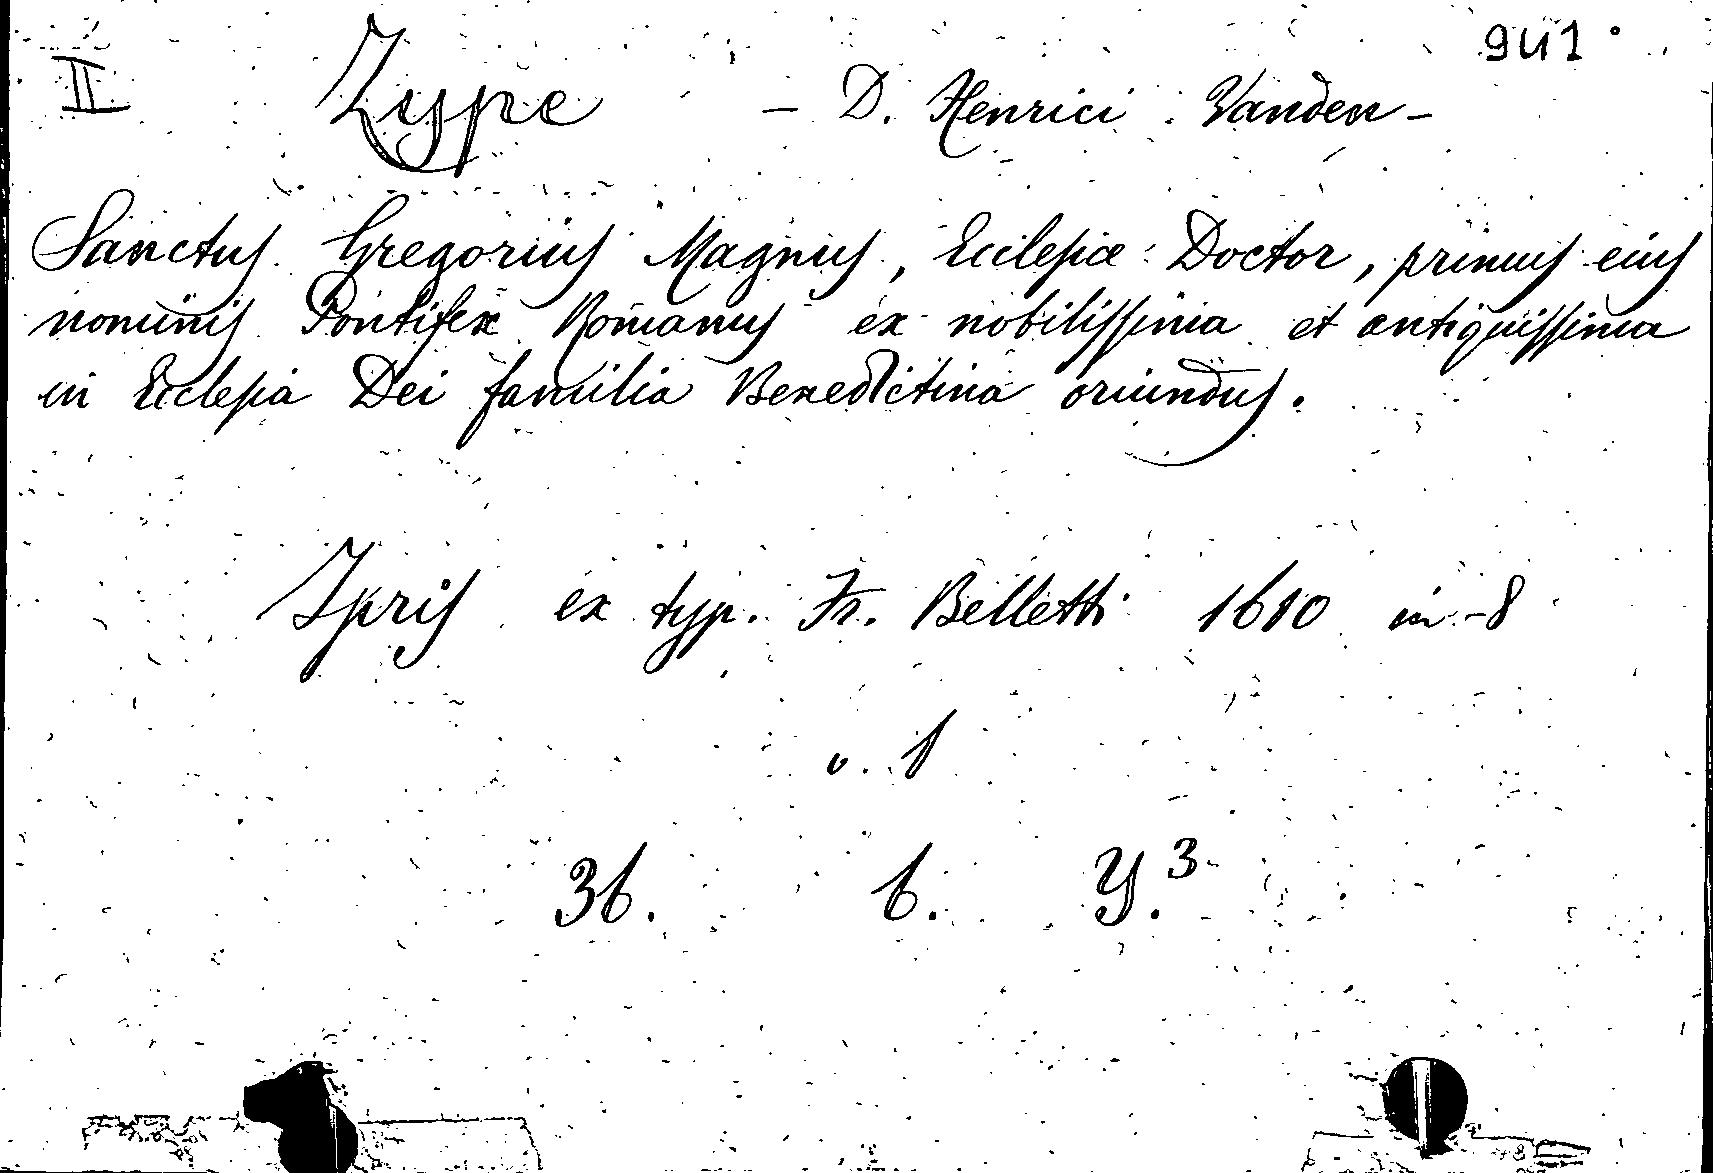 941
II Zype - D. Henrici Vanden -
Sanctus Gregorius Magnus, Ecclesiæ Doctor, primus eius
nominis Pontifex Romanus ex nobilissima et antiquissima
in Ecclesia Dei familia Benedictina oriundus.
Ipris ex typ. Fr. Belletti 1610 in-8
v. 1
36. 6. Y.3